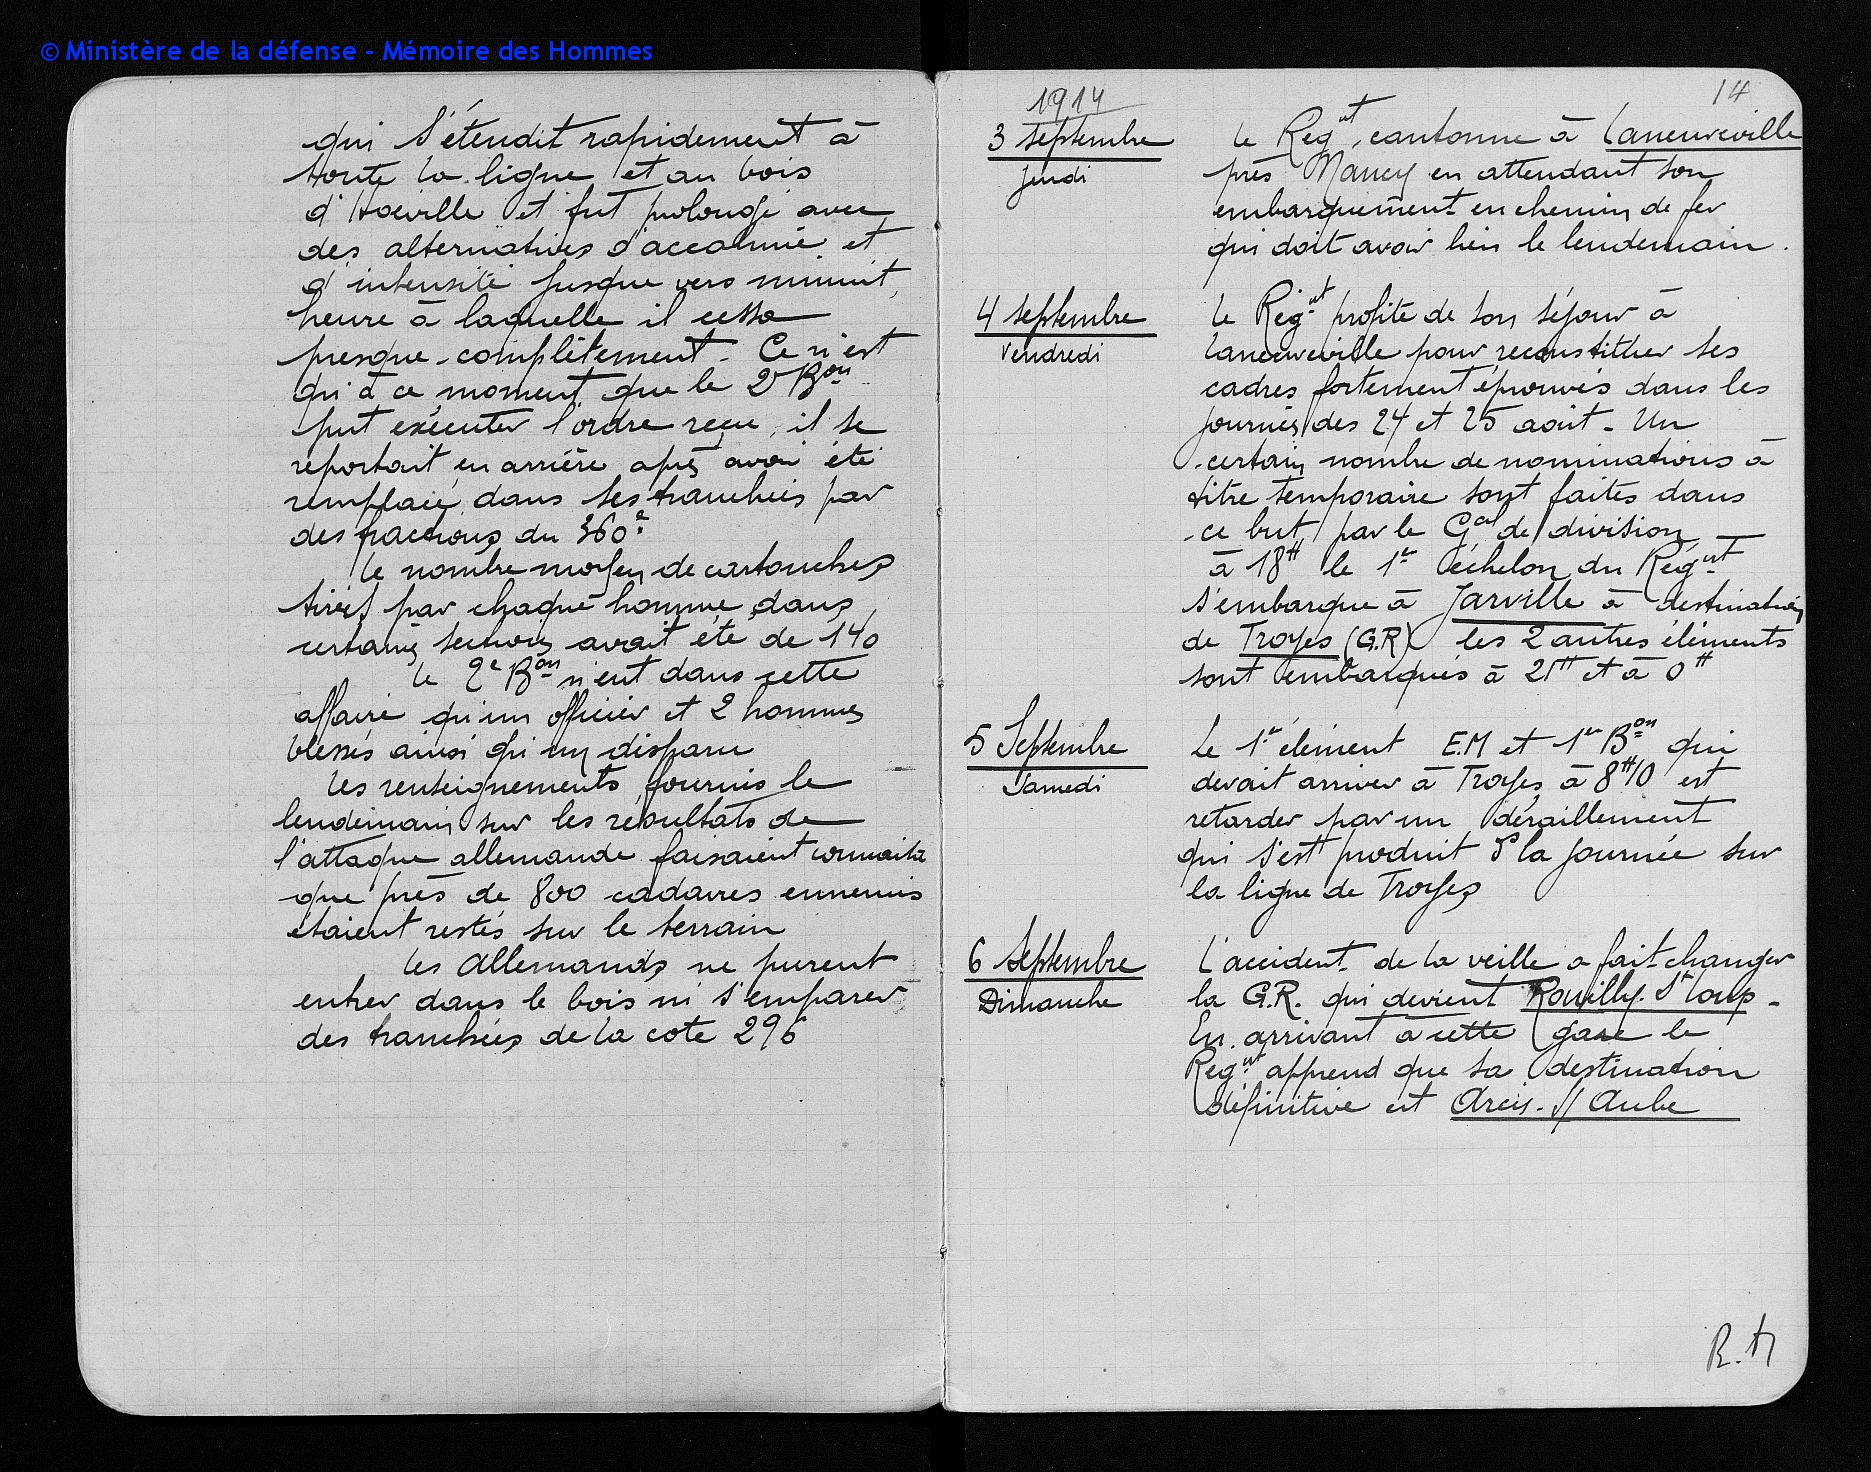 © Ministère de la défense - Mémoire des Hommes
qui s'étendit rapidement à
toute la ligne et au bois
d'Hoéville et fut prolongé avec
des alternatives d'accalmie et
d'intensité jusque vers minuit,
heure à laquelle il cessa
presque complètement. Ce n'est
qu'à ce moment que le 2e Bon
put exécuter l'ordre reçu, il se
reportait en arrière après avoir été
remplacé dans ses tranchées par
des fractions du 360e
Le nombre moyen de cartouches
tirées par chaque homme dans
certaines sections avait été de 140
Le 2e Bon n'eut dans cette
affaire qu'un officier et 2 hommes
blessés ainsi qu'un disparu
Les renseignements fournis le
lendemain sur les résultats de
l'attaque allemande faisaient connaître
que près de 800 cadavres ennemis
étaient restés sur le terrain
Les allemands ne purent
entrer dans le bois ni s'emparer
des tranchées de la cote 296
14
1914
3 septembre
jeudi
Le Régnt cantonne à Laneuveville
près Nancy en attendant son
embarquement en chemin de fer
qui doit avoir lieu le lendemain.
4 septembre
Vendredi
Le Régnt profite de son séjour à
Laneuveville pour reconstituer ses
cadres fortement éprouvés dans les
journées des 24 et 25 août. Un
certain nombre de nominations à
titre temporaire sont faites dans
ce but par le Gal de division
à 18H le 1er échelon du Régnt
s'embarque à Jarville à destination
de Troyes (G.R) les 2 autres éléments
sont embarqués à 21H et à 0H
5 Septembre
Samedi
Le 1er élément E.M et 1er Bon qui
devait arriver à Troyes à 8H10 est
retarder par un déraillement
qui s'est produit ds la journée sur
la ligne de Troyes
6 Septembre
Dimanche
L'accident de la veille a fait changer
la G.R. qui devient Rouilly-St Loup.
En arrivant à cette gare le
Régnt apprend que sa destination
définitive est Arcis-s/Aube
R.H